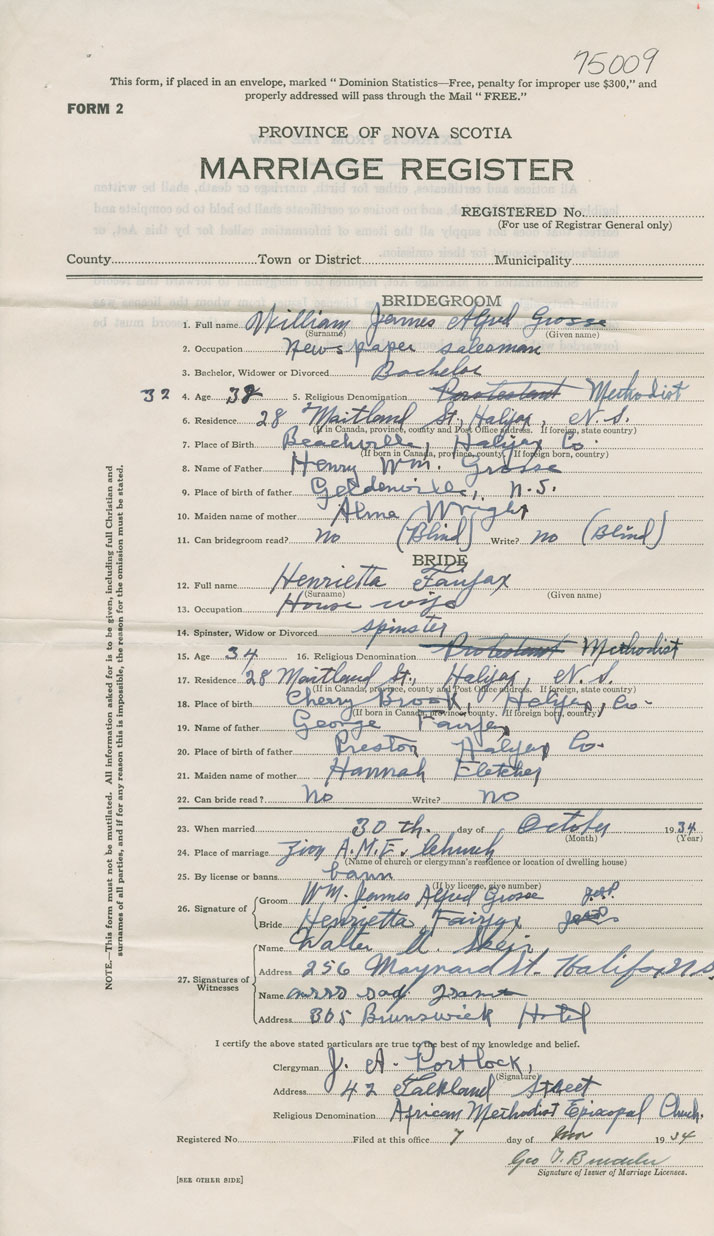 75009
This form, if placed in an envelope, marked “ Dominion Statistics—Free, penalty for improper use $300,” and
properly addressed will pass through the Mail “ FREE.”
FORM 2
PROVINCE OF NOVA SCOTIA
MARRIAGE REGISTER
REGISTERED No.
(For use of Registrar General only)
County Town or District Municipality
BRIDEGROOM
1. Full name William James Alfred Grosse
(Surname) (Given name)
2. Occupation News paper salesman
3. Bachelor, Widower or Divorced Bachelor
32 4. Age 32 5. Religious Denomination Protestant Methodist
6. Residence 28 Maitland St., Halifax, N.S.
(If in Canada, province, county and Post Office address. If foreign, state country)
7. Place of Birth Beachville, Halifax Co.
(If born in Canada, province, county. If foreign born, country)
8. Name of Father Henry Wm. Grosse
9. Place of birth of father Goldenville, N.S.
10. Maiden name of mother Alma Wright
11. Can bridegroom read? No (Blind) Write? no (Blind)
BRIDE
12. Full name Henrietta Fairfax
(Surname) (Given name)
13. Occupation House wife
14. Spinster, Widow or Divorced spinster
15. Age 34 16. Religious Denomination Protestant Methodist
17. Residence 28 Maitland St., Halifax, N.S.
(If in Canada, province, county and Post Office address. If foreign, state country)
18. Place of birth Cherry Brook, Halifax, Co-
(If born in Canada, province, county. If foreign born, country)
19. Name of father George Fairfax
20. Place of birth of father Preston Halifax Co-
21. Maiden name of mother Hannah Fletcher
22. Can bride read? No Write? No
23. When married 30 th. day of October 1934
(Month) (Year)
24. Place of marriage Zion A.M.E. Church
(Name of church or clergyman's residence or location of dwelling house)
25. By license or banns bann
(If by license, give number)
26. Signature of Groom WM. James Alfred Grosse
Bride Henrietta Fairfax
27. Signatures of Witnesses
Name Walter
Address 256 Maynard St. Halifax N.S
Name
Address 305 Brunswick Hotel
I certify the above stated particulars are true to the best of my knowledge and belief.
Clergyman J. A. Portlock,
(Signature)
Address 42 Falkland Street
Religious Denomination African Methodist Episcopal Church.
Registered No. Filed at this office 7 day of Nov 1934
Geo
Signature of Issuer of Marriage Licenses.
[SEE OTHER SIDE]
NOTE.—This form must not be mutilated. All information asked for is to be given, including full Christian and
surnames of all parties, and if for any reason this is impossible, the reason for the omission must be stated.